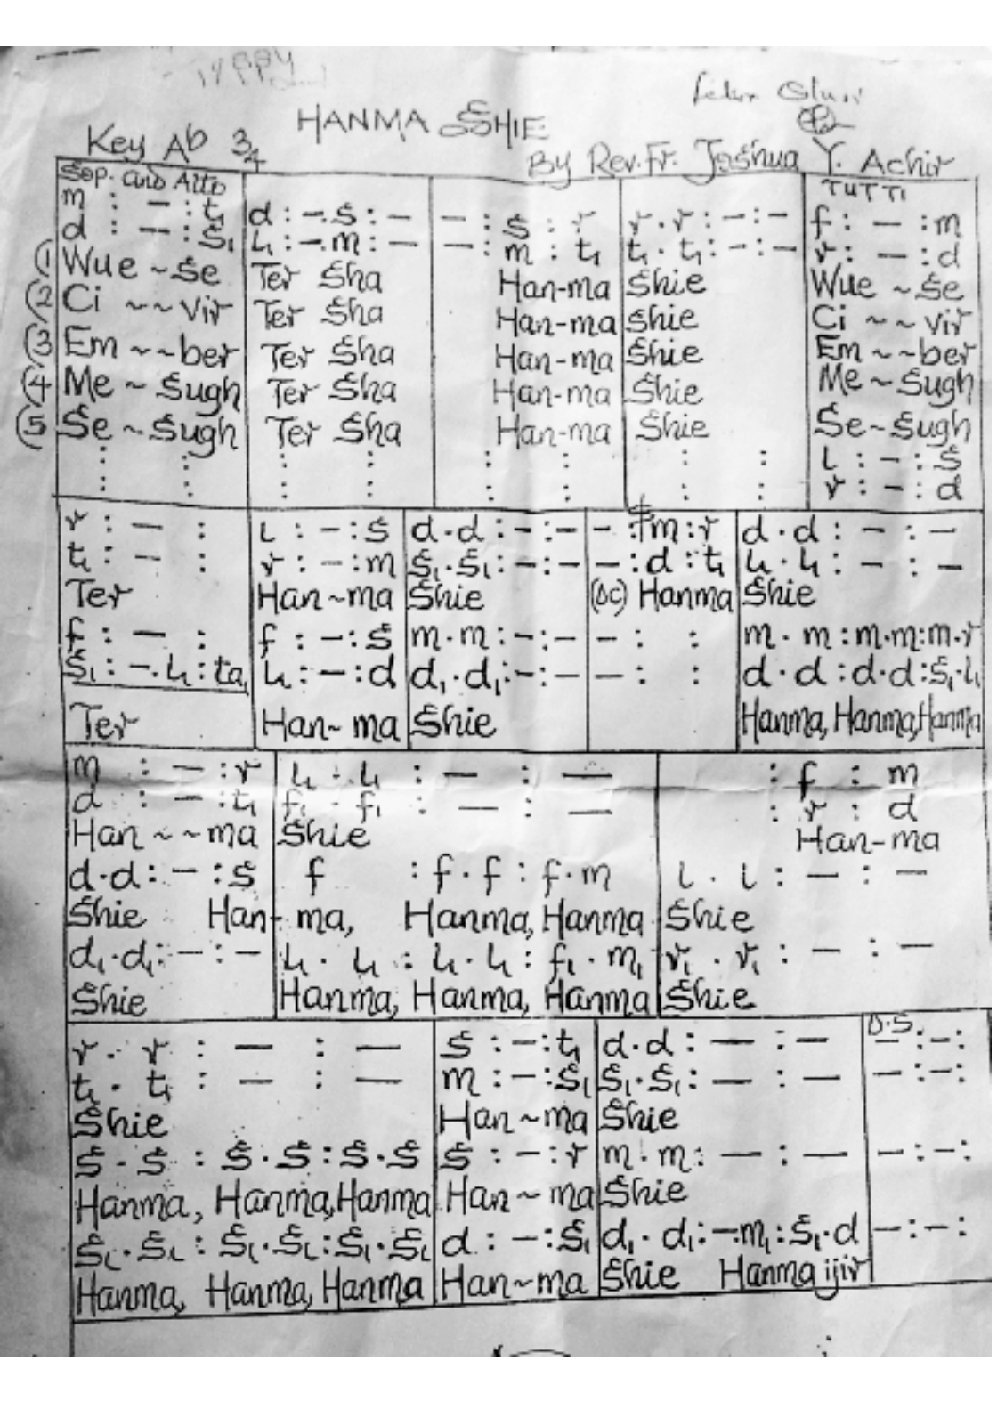 HANMA SHIE
Key Ab 3/4
By Rev. Fr. Joshua Y. Achir
Sop. and Alto
TUTTI
m : — : t₁ | d : —. s : — | — : s : r | r . r : — : — | f : — : m
d : — : s₁ | l₁ : —. m : — | — : m : t₁ | t₁ . t₁ : — : — | r : — : d
(1) Wue ~ Se | Ter Sha | Han-ma | Shie | Wue ~ Se
(2) Ci ~ ~ vir | Ter Sha | Han-ma | Shie | Ci ~ ~ vir
(3) Em ~ ~ ber | Ter Sha | Han-ma | Shie | Em ~ ~ ber
(4) Me ~ Sugh | Ter Sha | Han-ma | Shie | Me ~ Sugh
(5) Se ~ Sugh | Ter Sha | Han-ma | Shie | Se ~ Sugh
: : | : : | : : | : : | l : — : s
: : | : : | : : | : : | r : — : d
r : — : | l : — : s | d . d : — : — | — : fm : r | d . d : — : —
t₁ : — : | r : — : m | s₁ . s₁ : — : — | — : d : t₁ | l₁ . l₁ : — : —
Ter | Han ~ ma | Shie | (DC) Hanma | Shie
f : — : | f : — : s | m . m : — : — | — : : | m . m : m . m : m . r
s₁ : — . l₁ : ta₁ | l₁ : — : d | d₁ . d₁ : — : — | — : : | d . d : d . d : s₁ . l₁
Ter | Han ~ ma | Shie | Hanma, Hanma, Hanma
m : — : r | l₁ . l₁ : — : — | : f : m
d : — : t₁ | f₁ . f₁ : — : — | : r : d
Han ~ ~ ma | Shie | Han-ma
d . d : — : s | f : f . f : f . m | l . l : — : —
Shie Han- | ma, Hanma, Hanma | Shie
d₁ . d₁ : — : — | l₁ . l₁ : l₁ . l₁ : f₁ . m₁ | r₁ . r₁ : — : —
Shie | Hanma, Hanma, Hanma | Shie
D.S.
r . r : — : — | s : — : t₁ | d . d : — : — | — : — :
t₁ . t₁ : — : — | m : — : s₁ | s₁ . s₁ : — : — | — : — :
Shie | Han ~ ma | Shie
s . s : s . s : s . s | s : — : r | m . m : — : — | — : — :
Hanma, Hanma, Hanma | Han ~ ma | Shie
s₁ . s₁ : s₁ . s₁ : s₁ . s₁ | d : — : s₁ | d₁ . d₁ : — . m₁ : s₁ . d | — : — :
Hanma, Hanma, Hanma | Han ~ ma | Shie Hanma ijir